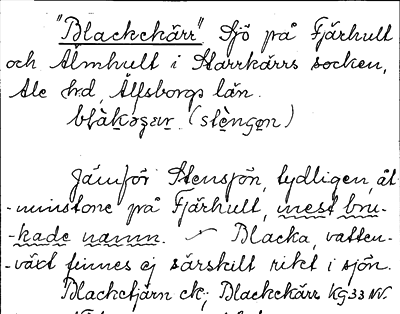 "Blackekärr" Sjö på Fjärhult
och Älmhult i Starrkärrs socken,
Ale hd, Älfsborgs län.
(stèngɷn)
Jämför Stensjön, tydligen, åt-
-minstone på Fjärhult, mest bru-
-kade namn. Blacka, vatten-
-växt finnes ej särskilt rikt i sjön.
Blacketjärn ek; Blackekärr KG33 NV.